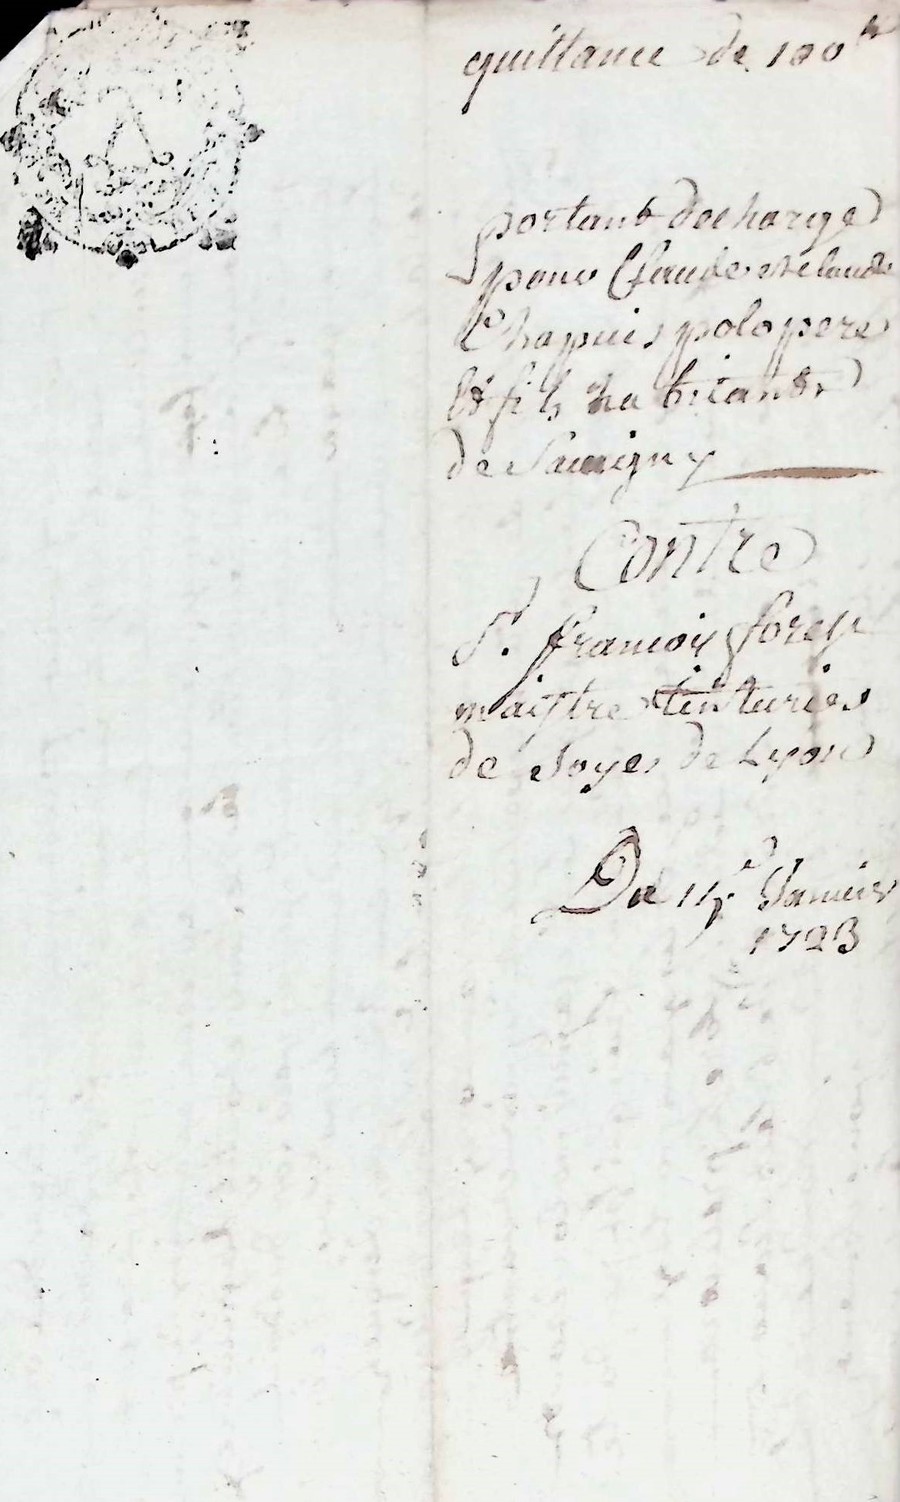 quittance de 100 ₶
portant decharge
pour Claude et Claude
Chapuis polo pere
et fils habitants
de Sauvigny
Contre
Sr. francois forest
maistre tinturier
de Soyes de Lyon
Du Janvier
1723